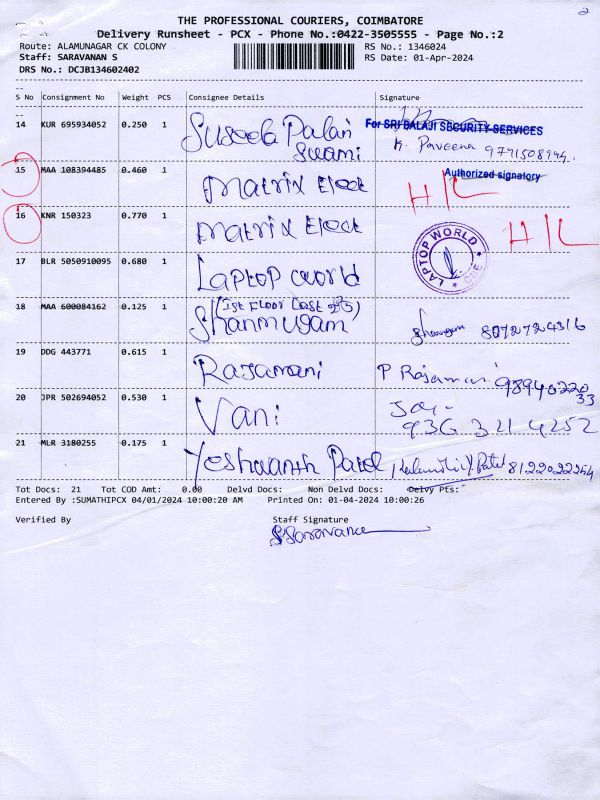 2
THE PROFESSIONAL COURIERS, COIMBATORE
Delivery Runsheet - PCX - Phone No.:0422-3505555 - Page No.:2
Route: ALAMUNAGAR CK COLONY
RS No.: 1346024
Staff: SARAVANAN S
RS Date: 01-Apr-2024
DRS No.: DCJB134602402
S No Consignment No Weight PCS Consignee Details Signature
14 KUR 695934052 0.250 1 Suseela Palani Swami
For SRI BALAJI SECURITY SERVICES
K. Paveena
Authorized signatory
15 MAA 108394485 0.460 1 Matrix Elect H/L
16 KNR 150323 0.770 1 Matrix Elect H/L
17 BLR 5050910095 0.680 1 Laptop world
LAPTOP WORLD * CBE *
18 MAA 600084162 0.125 1 (1st Floor Last
Shanmugam 8072724316
19 DDG 443771 0.615 1 Rajamani P Rajamani 9894022033
20 JPR 502694052 0.530 1 Vani
936 321 4252
21 MLR 3180255 0.175 1 Yeshwanth Patel Patel 8122022254
Tot Docs: 21 Tot COD Amt: 0.00 Delvd Docs: Non Delvd Docs: Delvy Pts:
Entered By :SUMATHIPCX 04/01/2024 10:00:20 AM Printed On: 01-04-2024 10:00:26
Verified By Staff Signature
S Saravanan